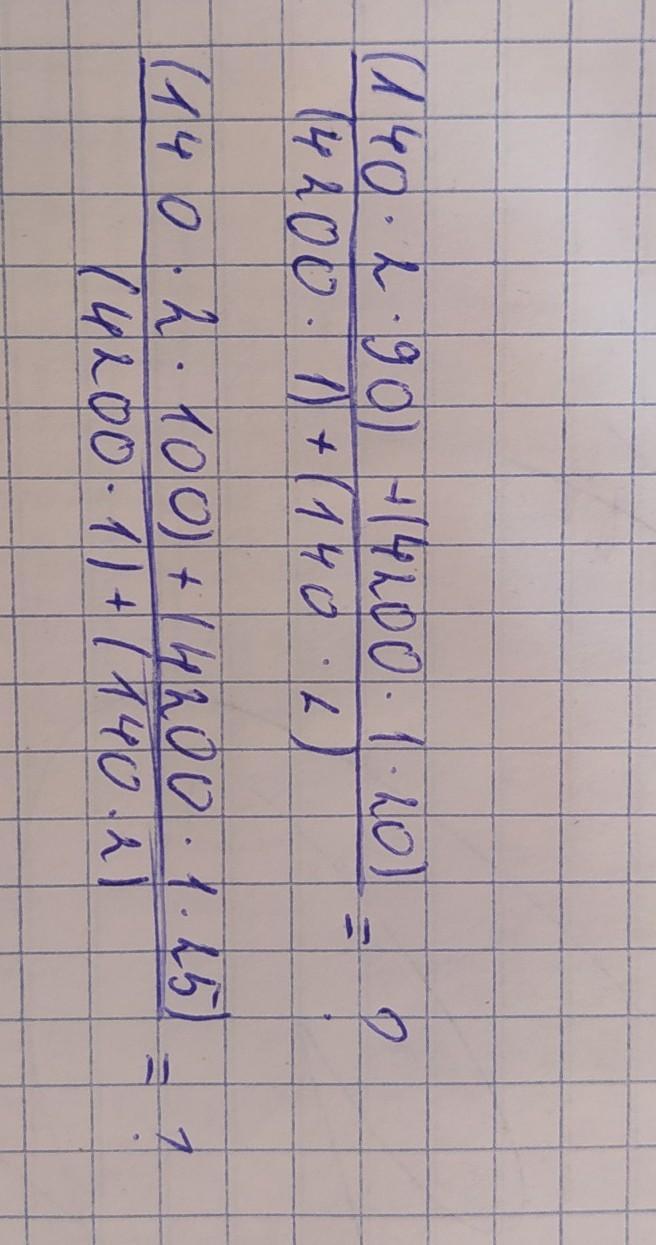 (140 · 2 · 90) + (4200 · 1 · 20)
(4200 · 1) + (140 · 2)
= ?
(140 · 2 · 100) + (4200 · 1 · 25)
(4200 · 1) + (140 · 2)
= ?